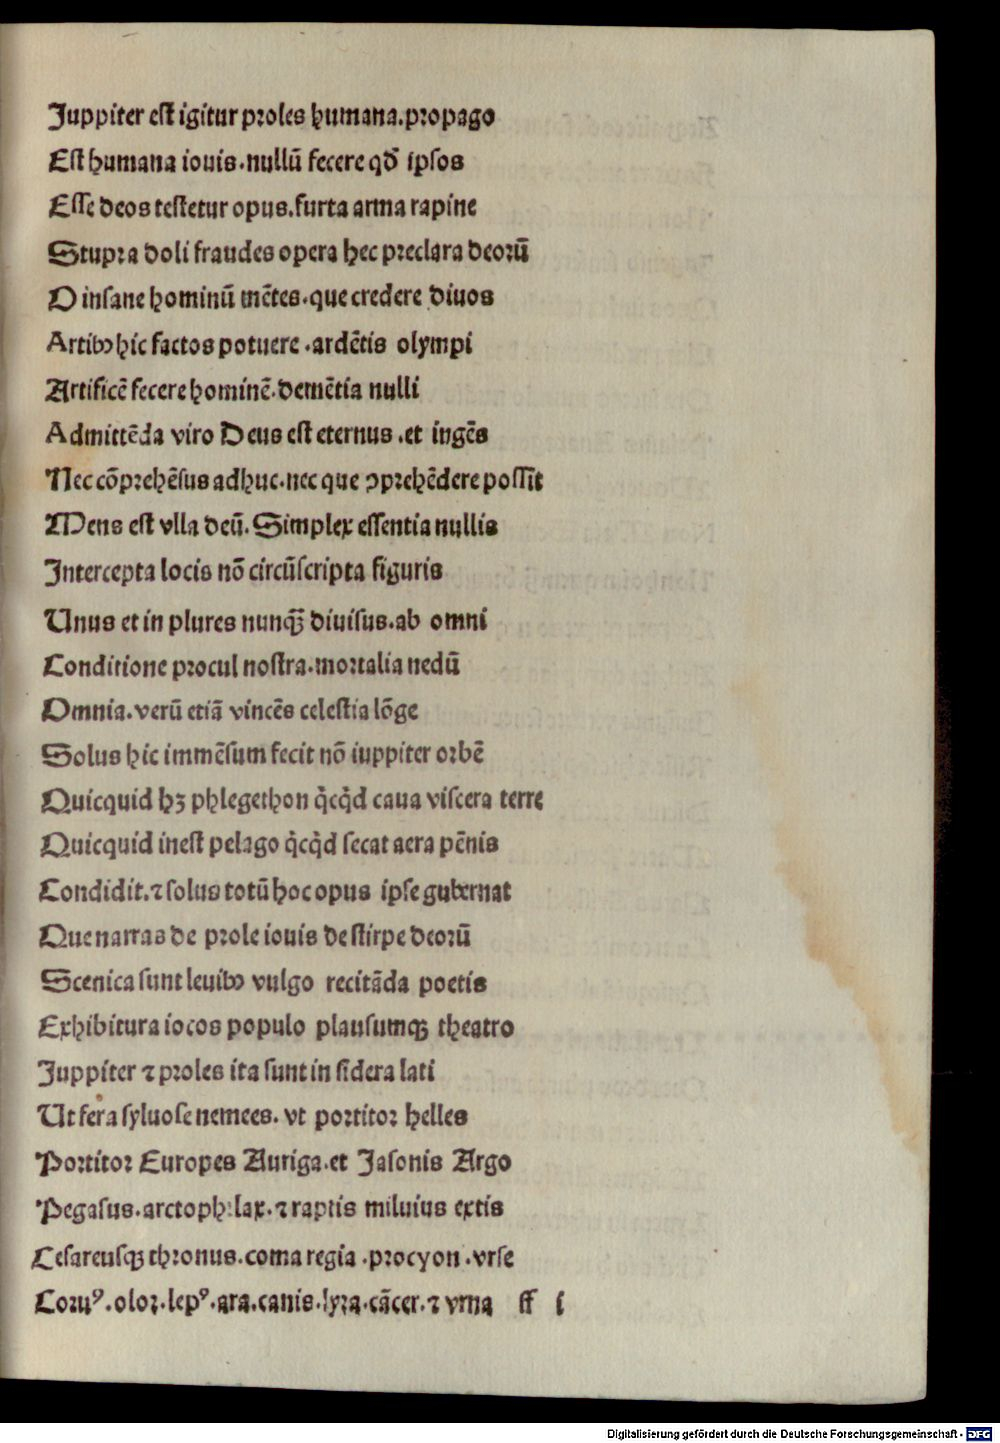 Juppiter est igitur proles humana.propago
Est humana iouis.nullū fecere qđ ipsos
Esse deos testetur opus.furta arma rapine
Stupra doli fraudes opera hec preclara deorū
O insane hominū mētes.que credere diuos
Artibꝰ hic factos potuere .ardētis olympi
Artificē fecere hominē.demētia nulli
Admittēda viro Deus est eternus .et ingēs
Nec cōprehēsus adhuc.nec que ꝯprehēdere possit
Mens est vlla deū. Simplex essentia nullis
Intercepta locis nō circūscripta figuris
Unus et in plures nunqꝫ diuisus.ab omni
Conditione procul nostra.mortalia nedū
Omnia.verū etiā vincēs celestia lōge
Solus hic immēsum fecit nō iuppiter orbē
Quicquid hꝫ phlegethon q̇cq̇d caua viscera terre
Quicquid inest pelago q̇cq̇d secat aera pēnis
Condidit.⁊ solus totū hoc opus ipse gubernat
Que narras de prole iouis de stirpe deorū
Scenica sunt leuibꝰ vulgo recitāda poetis
Exhibitura iocos populo plausumqꝫ theatro
Juppiter ⁊ proles ita sunt in sidera lati
Ut fera syluose nemees. vt portitor helles
Portitor Europes Auriga.et Jasonis Argo
Pegasus.arctophilax.⁊ raptis miluius extis
Cesareusqꝫ thronus.coma regia .procyon .vrse
Coruꝰ.olor.lepꝰ.ara.canis.lyra.cācer.⁊ vrna ff i
Digitalisierung gefördert durch die Deutsche Forschungsgemeinschaft - DFG